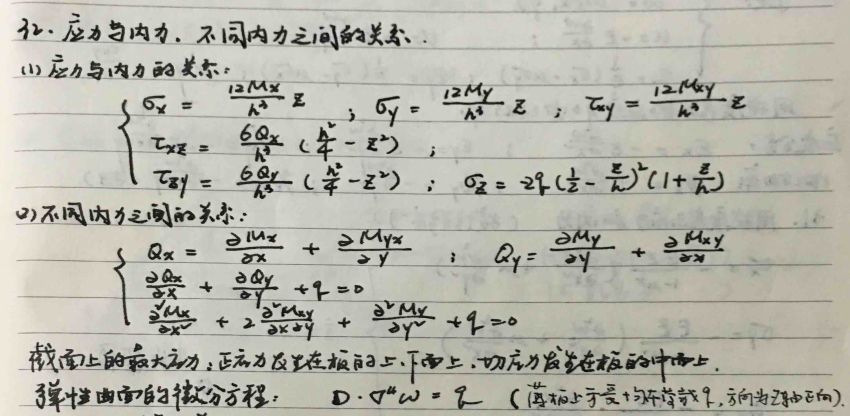 32. 应力与内力、不同内力之间的关系.
(1) 应力与内力的关系:
σx = 12Mx/h³ z ; σy = 12My/h³ z ; τxy = 12Mxy/h³ z
τxz = 6Qx/h³ (h²/4 - z²) ;
τzy = 6Qy/h³ (h²/4 - z²) ; σz = 2q(1/2 - z/h)²(1 + z/h)
(2) 不同内力之间的关系:
Qx = ∂Mx/∂x + ∂Myx/∂y ; Qy = ∂My/∂y + ∂Mxy/∂x
∂Qx/∂x + ∂Qy/∂y + q = 0
∂²Mx/∂x² + 2 ∂²Mxy/∂x∂y + ∂²My/∂y² + q = 0
截面上的最大应力: 正应力发生在板的上、下面上. 切应力发生在板的中面上.
弹性曲面的微分方程: D·∇⁴ω = q (薄板上承受均布荷载q, 方向为z轴正向).